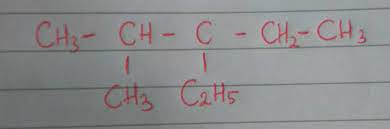 CH3 - CH - C - CH2 - CH3
CH3 C2H5